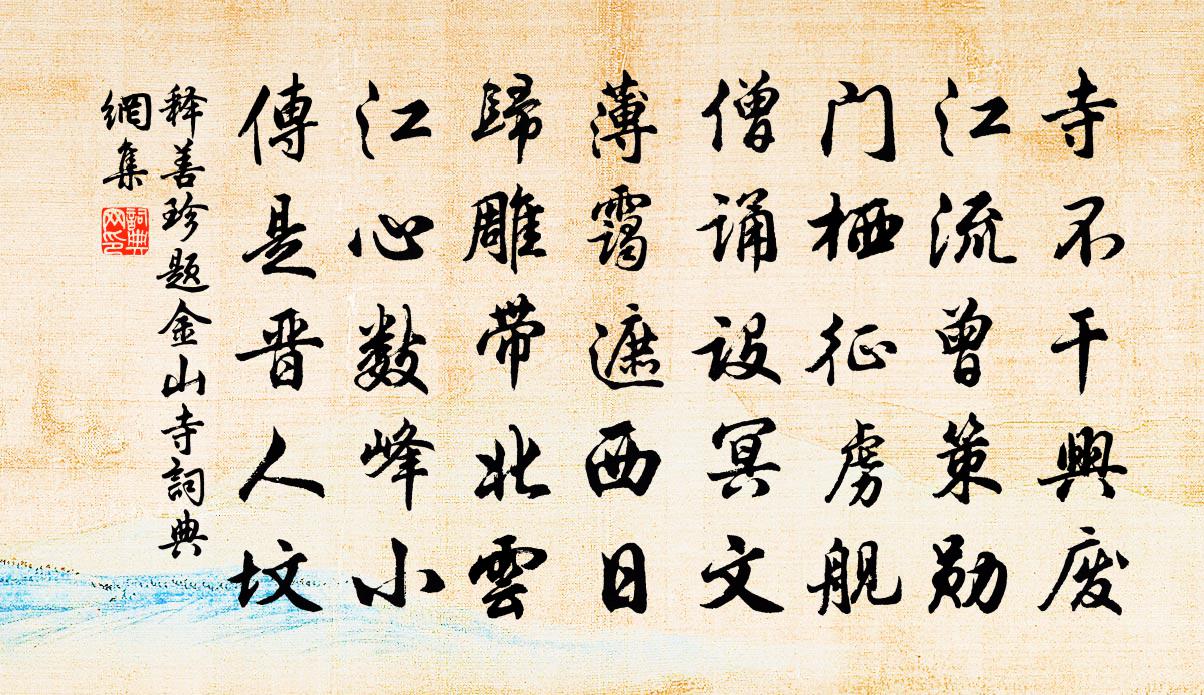 寺不干興废
江流曾策勋
门栖征虏舰
僧诵设冥文
薄霭遮西日
歸雕带北雲
江心数峰小
傳是晋人坟
释善珍题金山寺詞典
網集
詞典網印